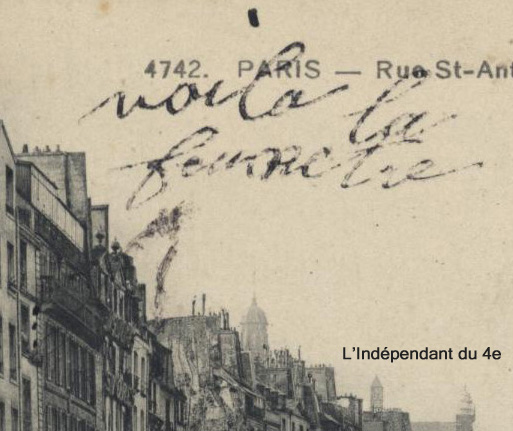 4742. PARIS — Rue St-Ant
voila la
fenêtre
L'Indépendant du 4e